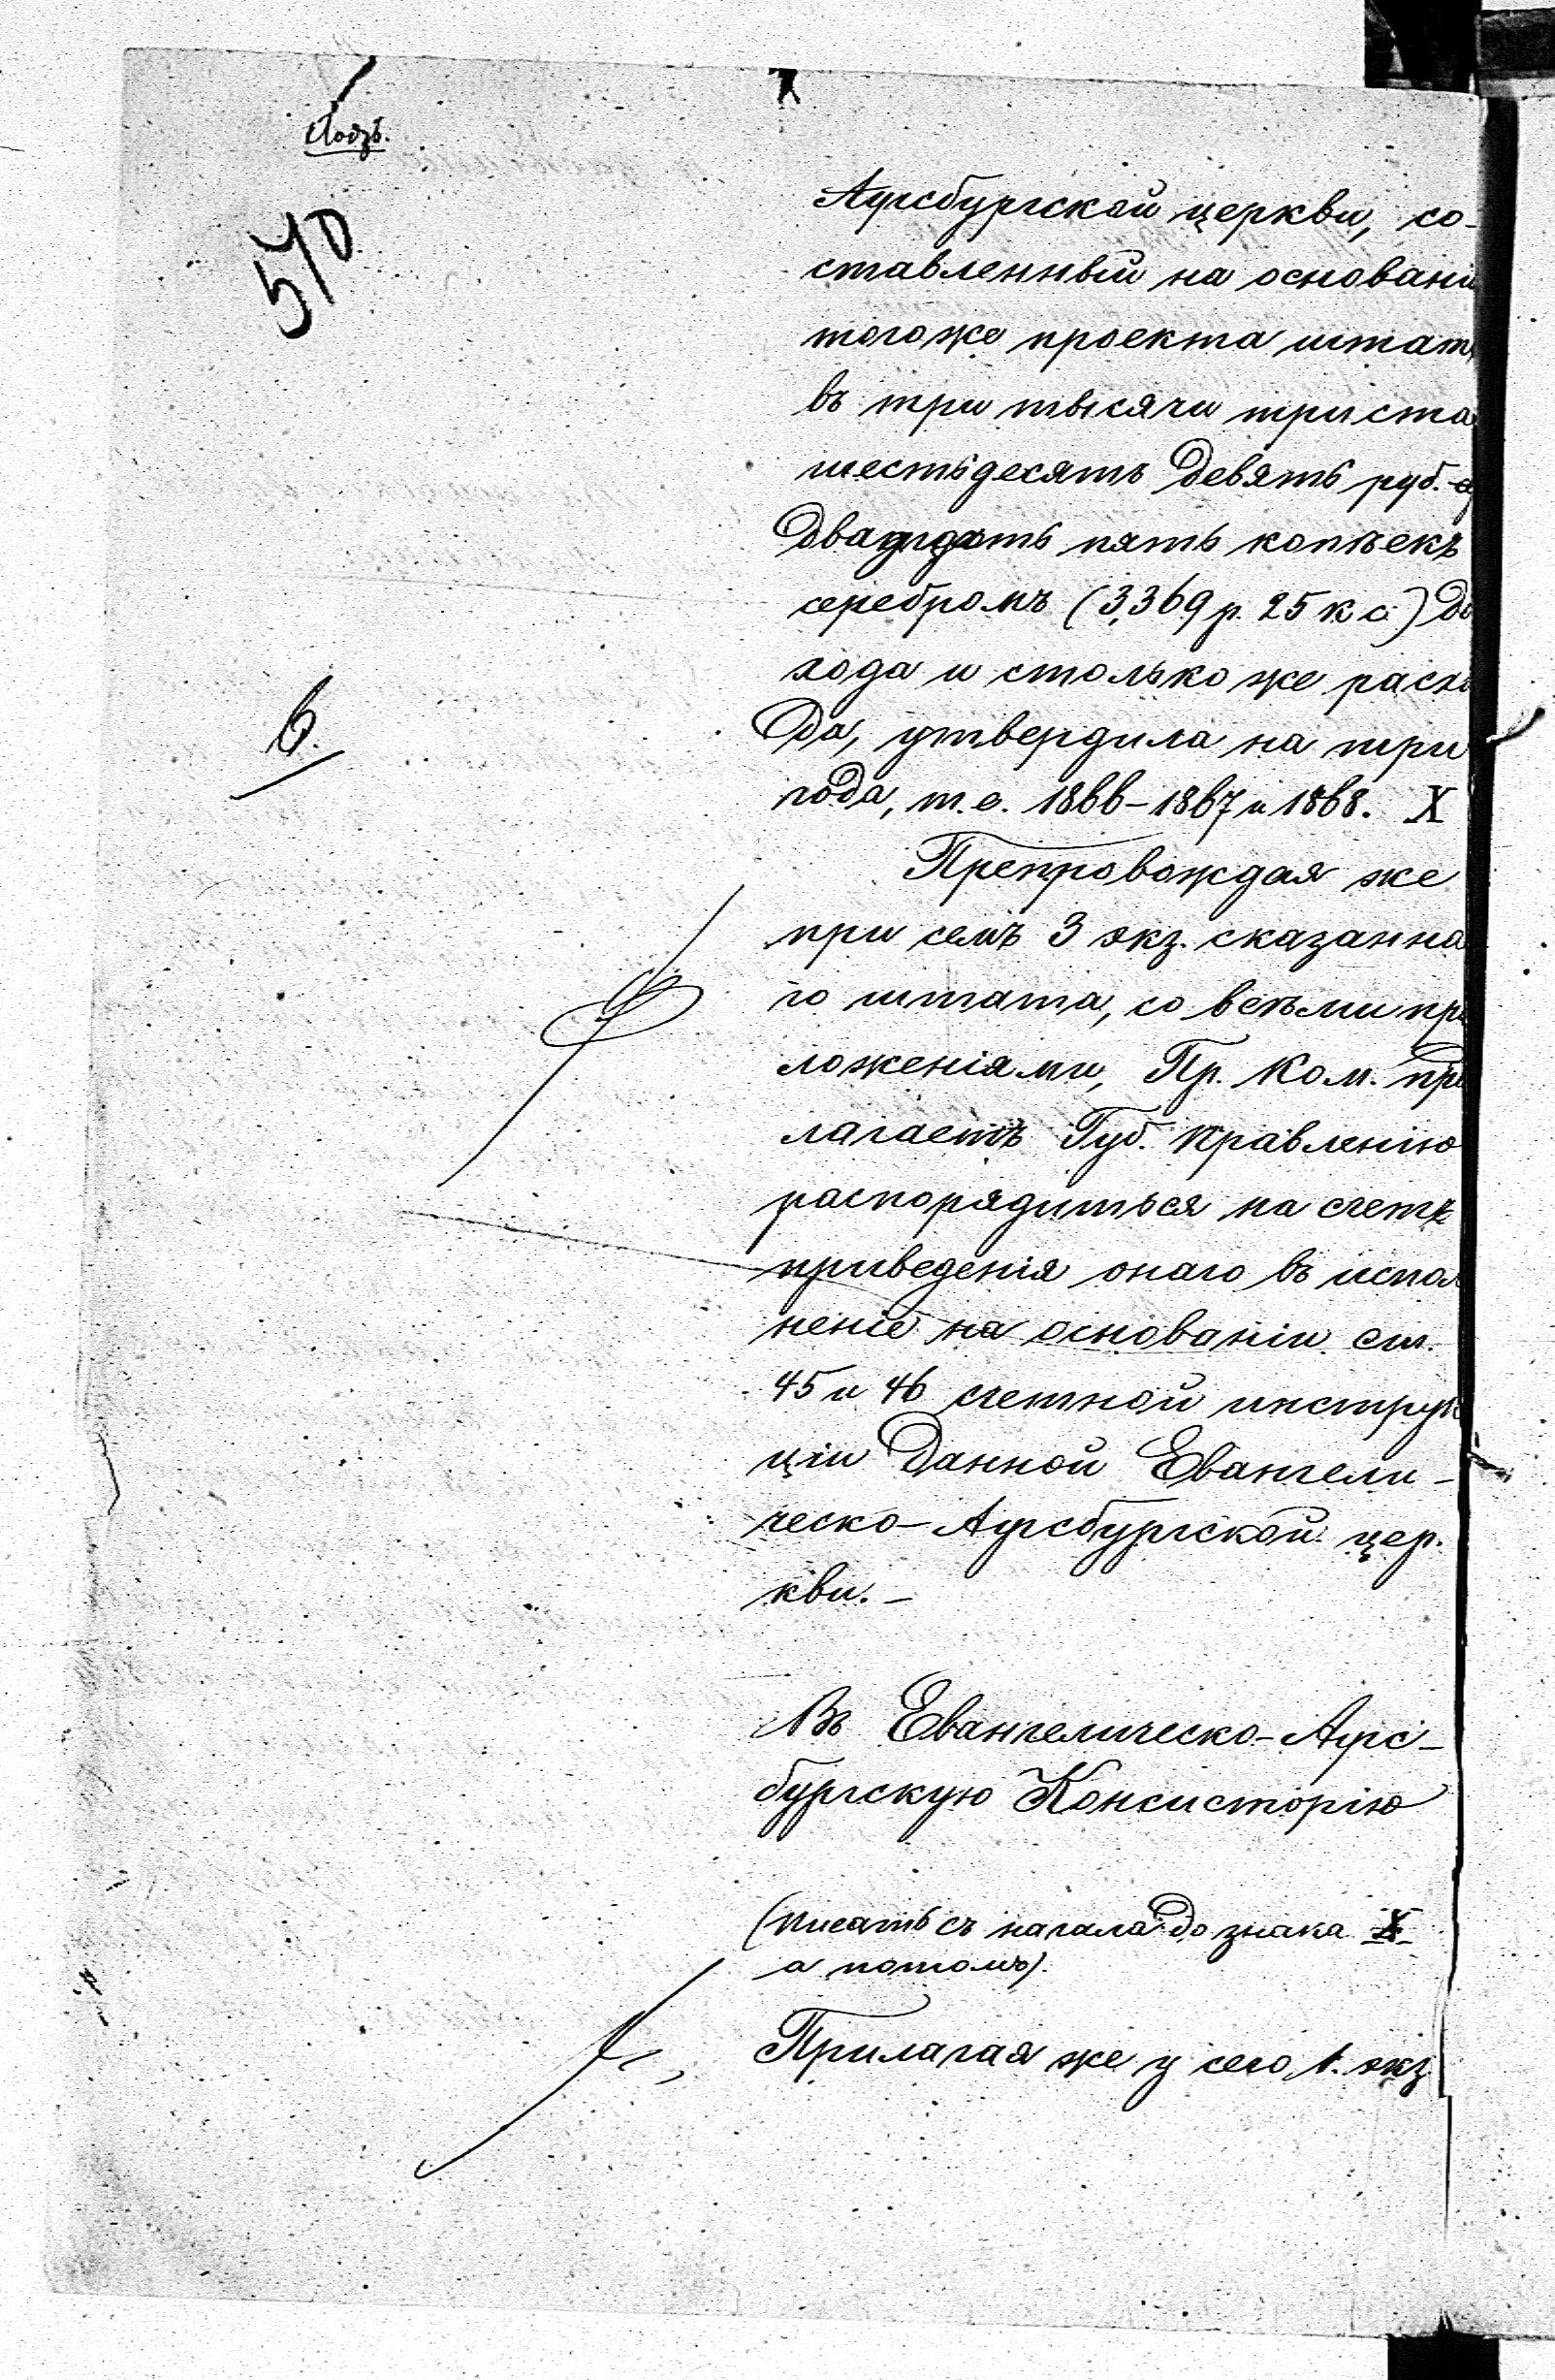 Лодзь.
570
6.
Аугсбургской церкви, со-
ставленный на основані
тогоже проекта штат
въ три тысячи триста
шестьдесятъ девять руб.
двадцать пять копѣекъ
серебромъ (3,369 р. 25 к с) до
хода и столько же расхо
да, утвердила на три
года, т.е. 1866–1867 и 1868. X
Препровождая же
при семъ 3 экз. сказанна
го штата, со всѣми при
ложеніями, Пр. Ком. пред
лагаетъ Губ. Правленію
распорядиться на счетъ
приведенія онаго въ испол
неніе на основаніи ст.
45 и 46 счетной инструк
ціи данной Евангели-
ческо-Аугсбургской цер.
кви.–
Въ Евангелическо-Аугс-
бургскую Консисторію
(писать съ начала до знака X
а потомъ).
Прилагая же у сего 1. экз.